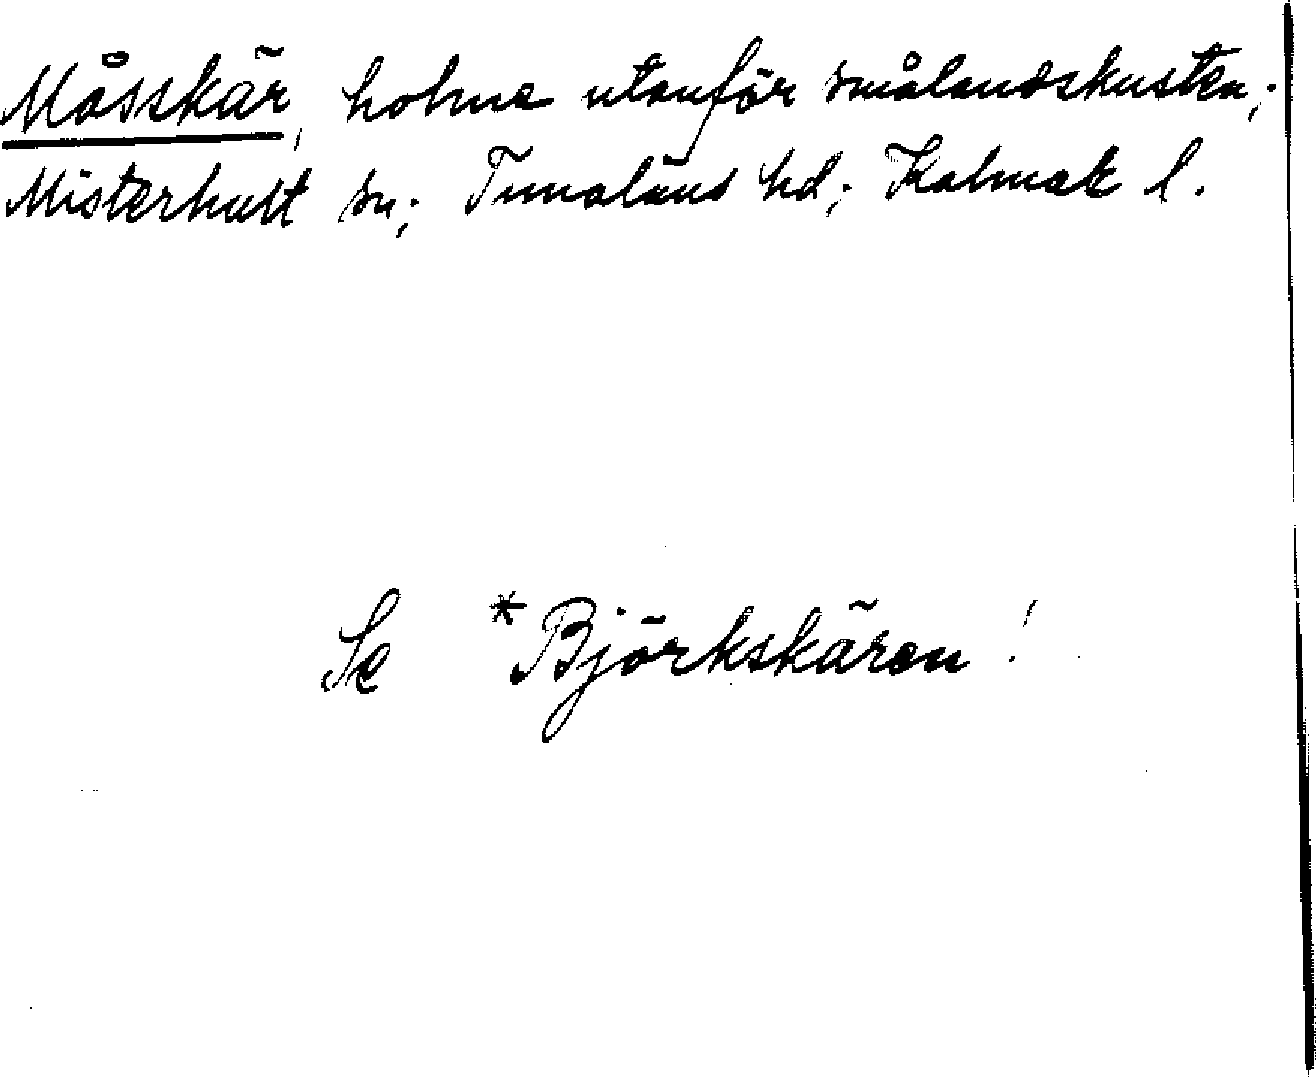 Måsskär, holme utanför smålandskusten;
Misterhult sn; Tunaläns hd; Kalmar l.
Se *Björkskären!